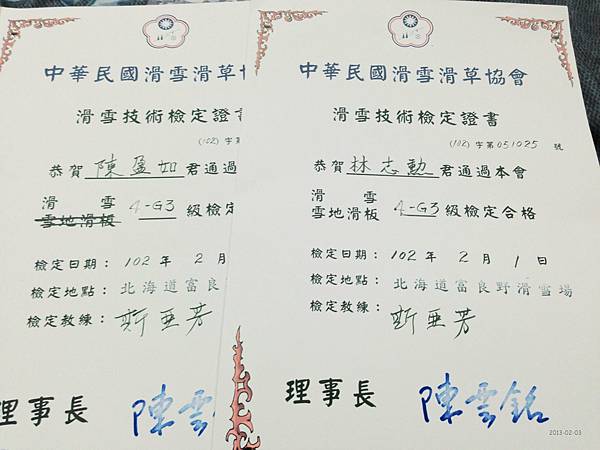 中華民國滑雪滑草協
滑雪技術檢定證書
(102) 字第
恭賀 陳盈如 君通過
滑雪
雪地滑板 4-G3 級檢定
檢定日期： 102 年 2 月
檢定地點： 北海道富良
檢定教練： 斯亜芳
理事長 陳雲
中華民國滑雪滑草協會
滑雪技術檢定證書
(102) 字第 051025 號
恭賀 林志勳 君通過本會
滑雪
雪地滑板 4-G3 級檢定合格
檢定日期： 102 年 2 月 1 日
檢定地點： 北海道富良野滑雪場
檢定教練： 斯亜芳
理事長 陳雲銘
2013-02-03